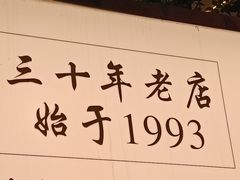 三十年老店
始于1993